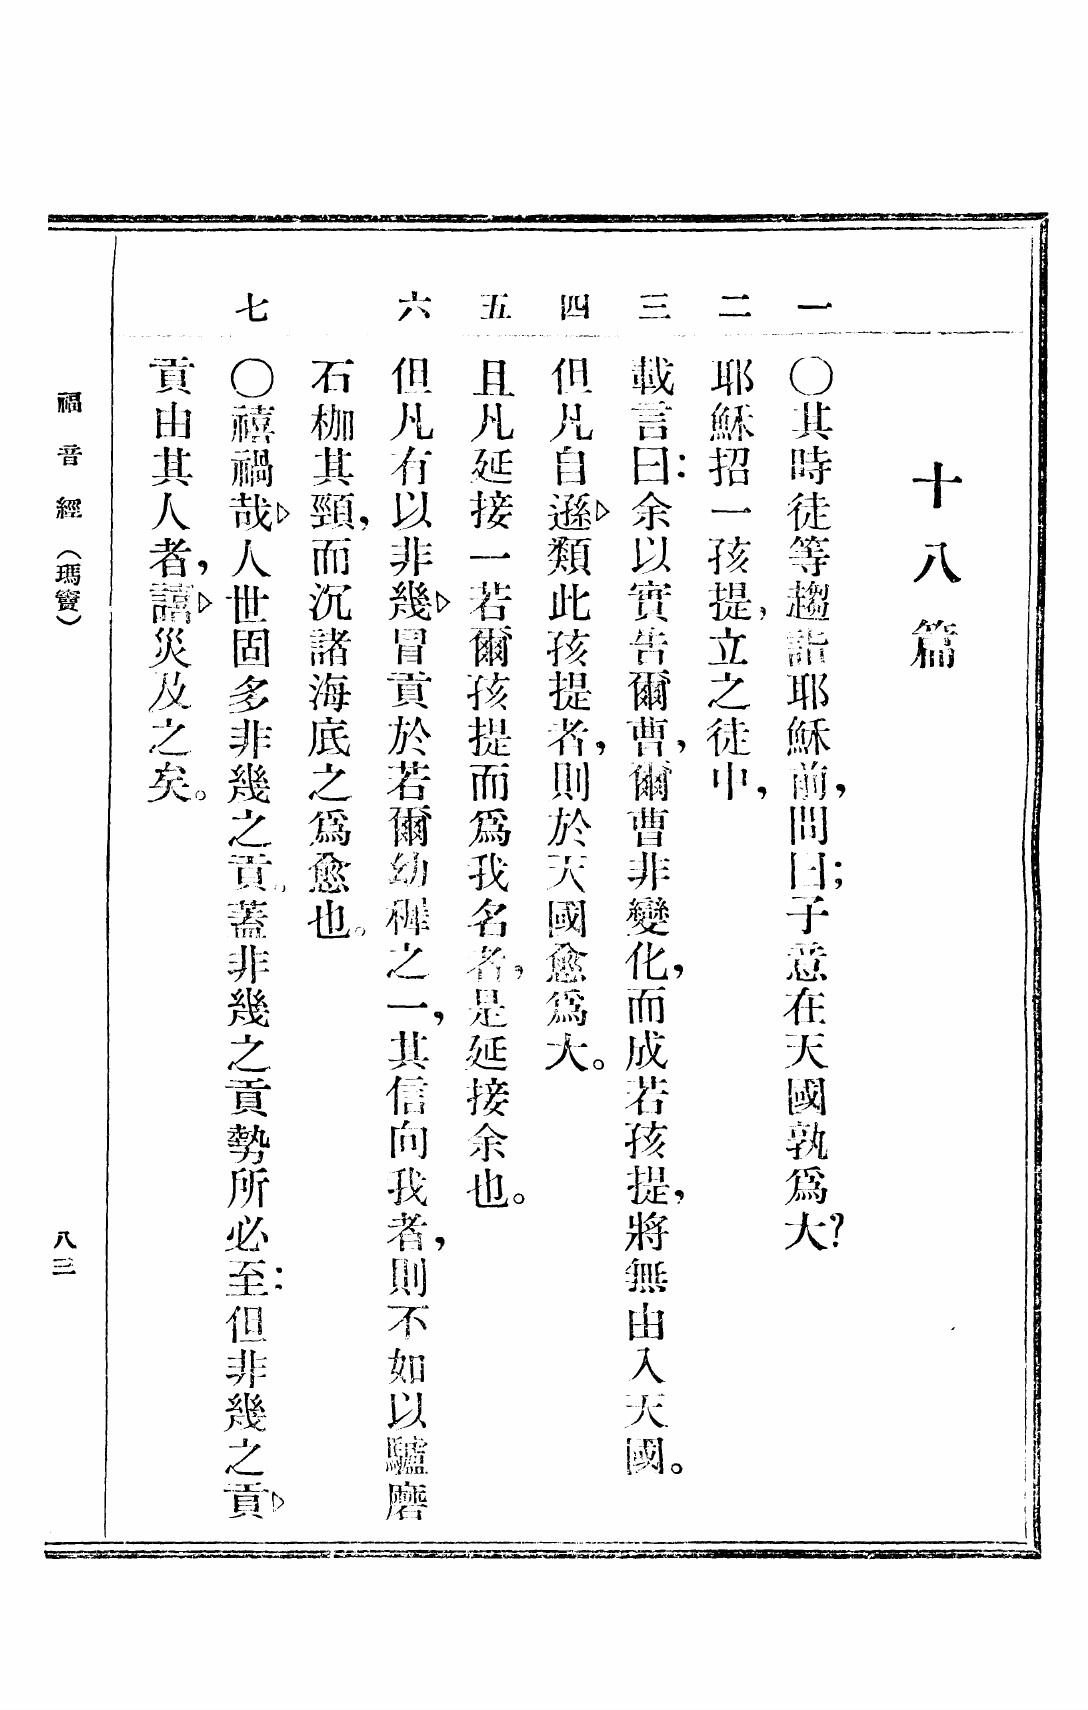 十八篇
一 〇其時徒等趨詣耶穌前，問曰；子意在天國孰爲大？
二 耶穌招一孩提，立之徒中，
三 載言曰：余以實告爾曹，爾曹非變化，而成若孩提，將無由入天國。
四 但凡自遜▷類此孩提者，則於天國愈爲大。
五 且凡延接一若爾孩提而爲我名者，是延接余也。
六 但凡有以非幾▷冒貢於若爾幼穉之一，其信向我者，則不如以驢磨
石枷其頸，而沉諸海底之爲愈也。
七 〇禧禍哉▷人世固多非幾之貢。蓋非幾之貢勢所必至：但非幾之貢▷
貢由其人者，譆▷災及之矣。
福音經（瑪竇）
八三